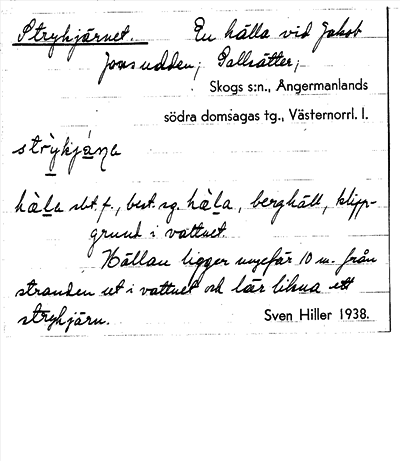 Strykjärnet. En hälla vid Jakob
Jonsudden; Pallsätter;
Skogs s:n., Ångermanlands
södra domsagas tg., Västernorrl. l.
strỳkjáṇa
hàḷa sbt. f., best. sg. hàḷa, berghäll, klipp-
grund i vattnet.
Hällan ligger ungefär 10 m. från
stranden ut i vattnet och lär likna ett
strykjärn. Sven Hiller 1938.